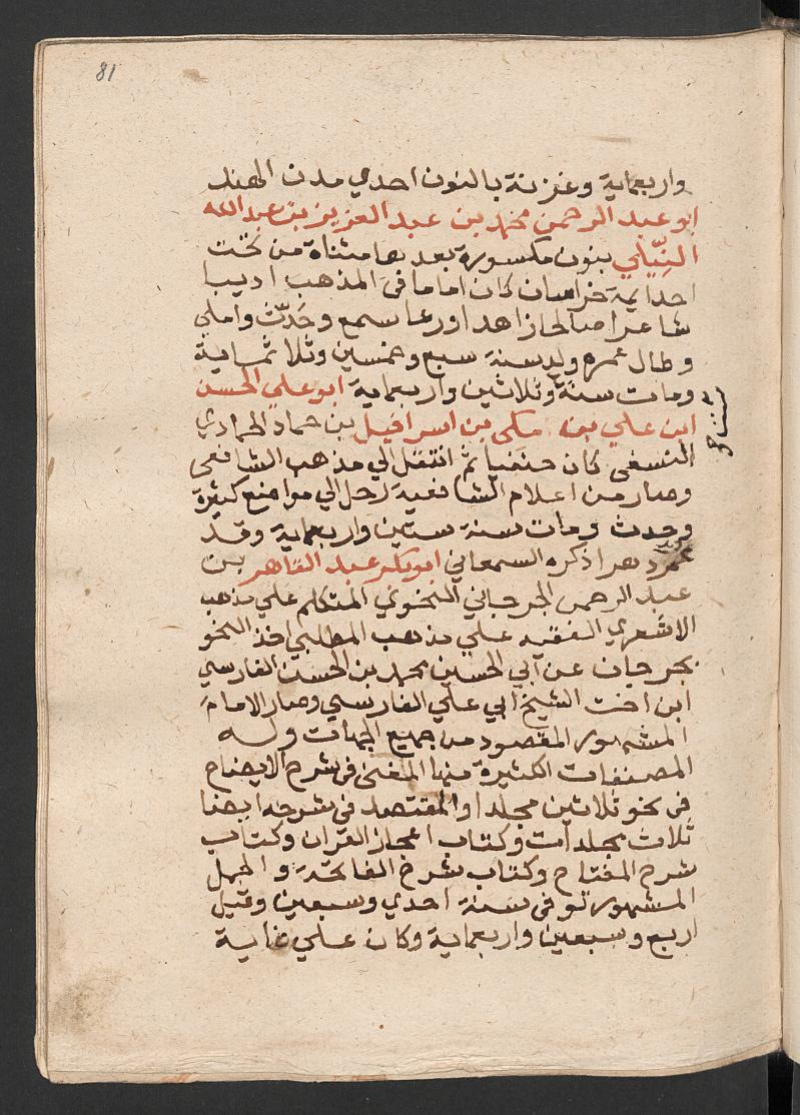 81
واربعماية وغزنة بالنون احدي مدن الهند
ابو عبد الرحمن محمد بن عبد العزيز بن عبد الله
النِّيلي بنون مكسورة بعدها مثناة من تحت
احد ايمة خراسان كان اماما في المذهب اديبا
شاعرا صالحا زاهدا ورعا سمع وحَدّث واملي
وطال عمره ولد سنة سبع وخمسين وثلاثماية
ومات سنة وثلاثين واربعماية ابو علي الحسن
ابن علي بن مكي بن اسرافيل بن حماد الحمادي
النسفي كان حنفيا ثم انتقل الي مذهب الشافعي
وصار من اعلام الشافعية رحل الي مواضع كثيرة
وحدث ومات سنة ستين واربعماية وقد
دهرا ذكره السمعاني ابو بكر عبد القاهر بن
عبد الرحمن الجرجاني النحوي المتكلم علي مذهب
الاشعري الفقيه علي مذهب المطلبي اخذ النحو
بجرجان عن ابي الحسين محمد بن الحسن الفارسي
ابن اخت الشيخ ابي علي الفارسي وصار الامام
المشهور المقصود من جميع الجهات وله
المصنفات الكثيرة منها المغني في شرح الايضاح
في نحو ثلاثين مجلدا والمقتصد في شرحه ايضا
ثلاث مجلدات وكتاب اعجاز القران وكتاب
شرح المفتاح وكتاب شرح الفاتحة والجمل
المشهور توفي سنة احدي وسبعين وقيل
اربع وسبعين واربعماية وكان علي غاية